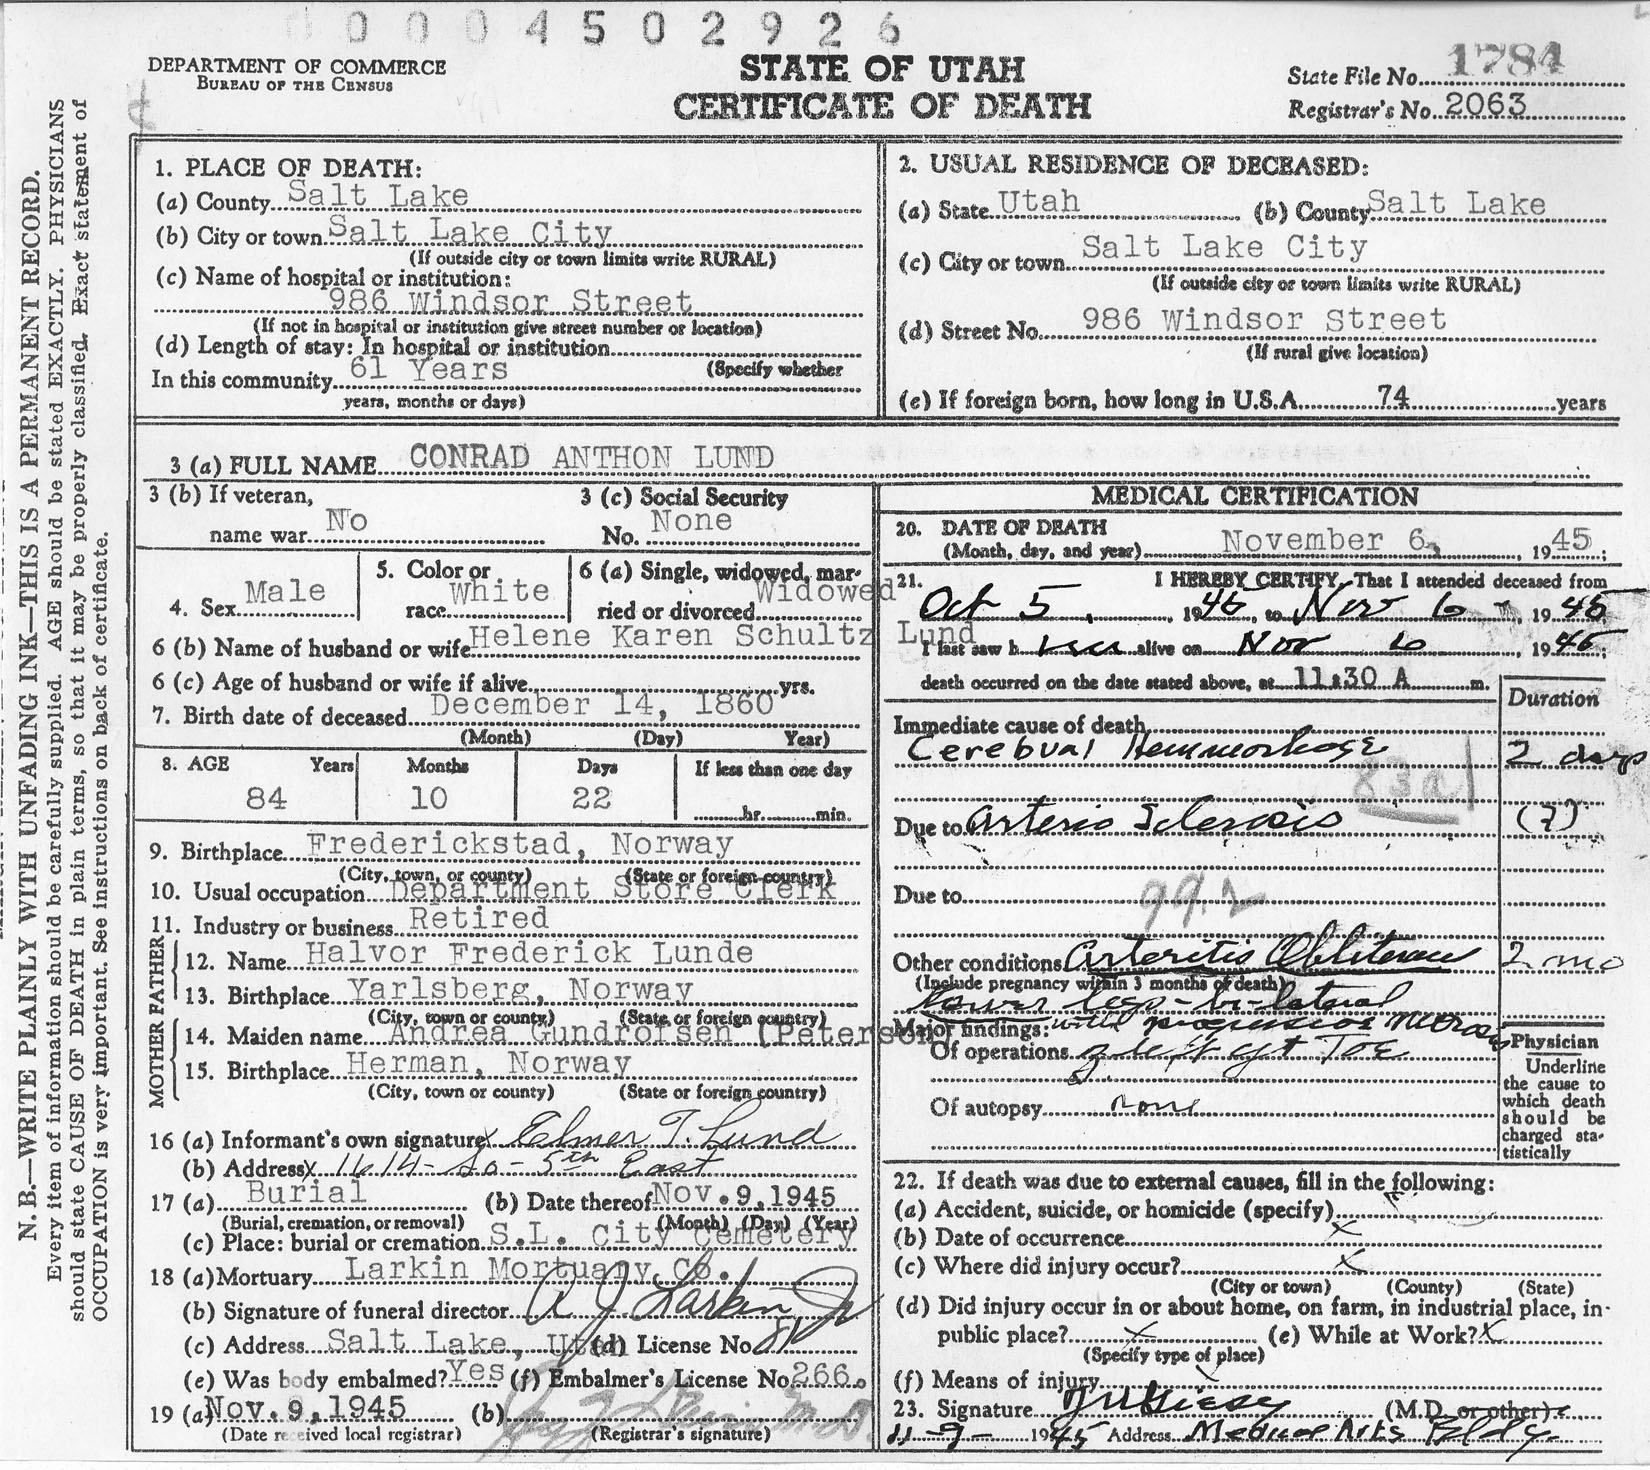 0004502926
DEPARTMENT OF COMMERCE
BUREAU OF THE CENSUS
STATE OF UTAH
CERTIFICATE OF DEATH
State File No. 1784
Registrar's No. 2063
N. B.—WRITE PLAINLY WITH UNFADING INK—THIS IS A PERMANENT RECORD.
Every item of information should be carefully supplied. AGE should be stated EXACTLY. PHYSICIANS
should state CAUSE OF DEATH in plain terms, so that it may be properly classified. Exact statement of
OCCUPATION is very important. See instructions on back of certificate.
1. PLACE OF DEATH:
(a) County Salt Lake
(b) City or town Salt Lake City
(If outside city or town limits write RURAL)
(c) Name of hospital or institution:
986 Windsor Street
(If not in hospital or institution give street number or location)
(d) Length of stay: In hospital or institution
(Specify whether
In this community 61 Years
years, months or days)
2. USUAL RESIDENCE OF DECEASED:
(a) State Utah (b) County Salt Lake
(c) City or town Salt Lake City
(If outside city or town limits write RURAL)
(d) Street No. 986 Windsor Street
(If rural give location)
(e) If foreign born, how long in U.S.A. 74 years
3 (a) FULL NAME CONRAD ANTHON LUND
3 (b) If veteran,
name war No
3 (c) Social Security
No. None
4. Sex Male
5. Color or
race White
6 (a) Single, widowed, mar-
ried or divorced Widowed
6 (b) Name of husband or wife Helene Karen Schultz Lund
6 (c) Age of husband or wife if alive yrs.
7. Birth date of deceased December 14, 1860
(Month) (Day) Year)
8. AGE Years Months Days If less than one day
84 10 22 hr. min.
9. Birthplace Frederickstad, Norway
(City, town, or county) (State or foreign country)
10. Usual occupation Department Store Clerk
11. Industry or business Retired
FATHER
12. Name Halvor Frederick Lunde
13. Birthplace Yarlsberg, Norway
(City, town or county) (State or foreign country)
MOTHER
14. Maiden name Andrea Gundrorsen (Peterson)
15. Birthplace Herman, Norway
(City, town or county) (State or foreign country)
16 (a) Informant's own signature x Elmer T. Lund
(b) Address x 1614 - So - 5th East
17 (a) Burial (b) Date thereof Nov. 9, 1945
(Burial, cremation, or removal) (Month) (Day) (Year)
(c) Place: burial or cremation S.L. City Cemetery
18 (a) Mortuary Larkin Mortuary Co.
(b) Signature of funeral director A J Larkin Jr
(c) Address Salt Lake, Utah (d) License No. 81
(e) Was body embalmed? Yes (f) Embalmer's License No. 266.
19 (a) Nov. 9, 1945 (b)
(Date received local registrar) (Registrar's signature)
MEDICAL CERTIFICATION
20. DATE OF DEATH
(Month, day, and year) November 6, 1945;
21. I HEREBY CERTIFY, That I attended deceased from
Oct 5, 1945, to Nov 6 -, 1945
I last saw h im alive on Nov 6, 1945;
death occurred on the date stated above, at 11:30 A m.
Duration
Immediate cause of death
Cerebual Hemmorhage 2 days
83a
Due to Arterio Sclerosis (?)
Due to 99.2
Other conditions Arteritis Obliterans 2 mo
(Include pregnancy within 3 months of death)
Lower legs - bi-lateral
Major findings: with progressive necrosis
Of operations of left gt Toe
Of autopsy none
Physician
Underline
the cause to
which death
should be
charged sta-
tistically
22. If death was due to external causes, fill in the following:
(a) Accident, suicide, or homicide (specify)
(b) Date of occurrence x
(c) Where did injury occur? x
(City or town) (County) (State)
(d) Did injury occur in or about home, on farm, in industrial place, in
public place? x (e) While at Work? x
(Specify type of place)
(f) Means of injury
23. Signature (M.D. or other)
11-9- 1945 Address Medical Arts Bldg.